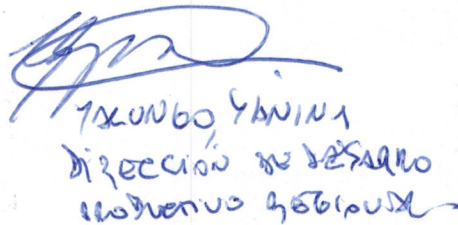 YANINA
DIRECCIÓN DE DESARRO
PRODUCTIVO REGIONAL